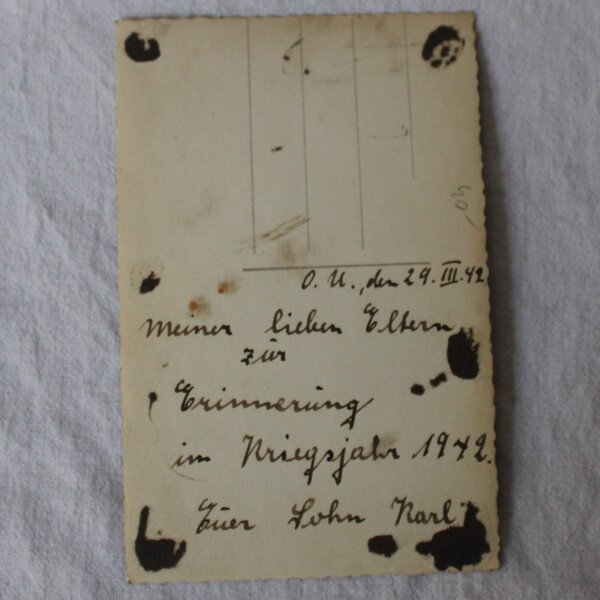 O. U., den 29. III. 42
Meiner lieben Eltern
zur
Erinnerung
im Kriegsjahr 1942.
Euer Sohn Karl